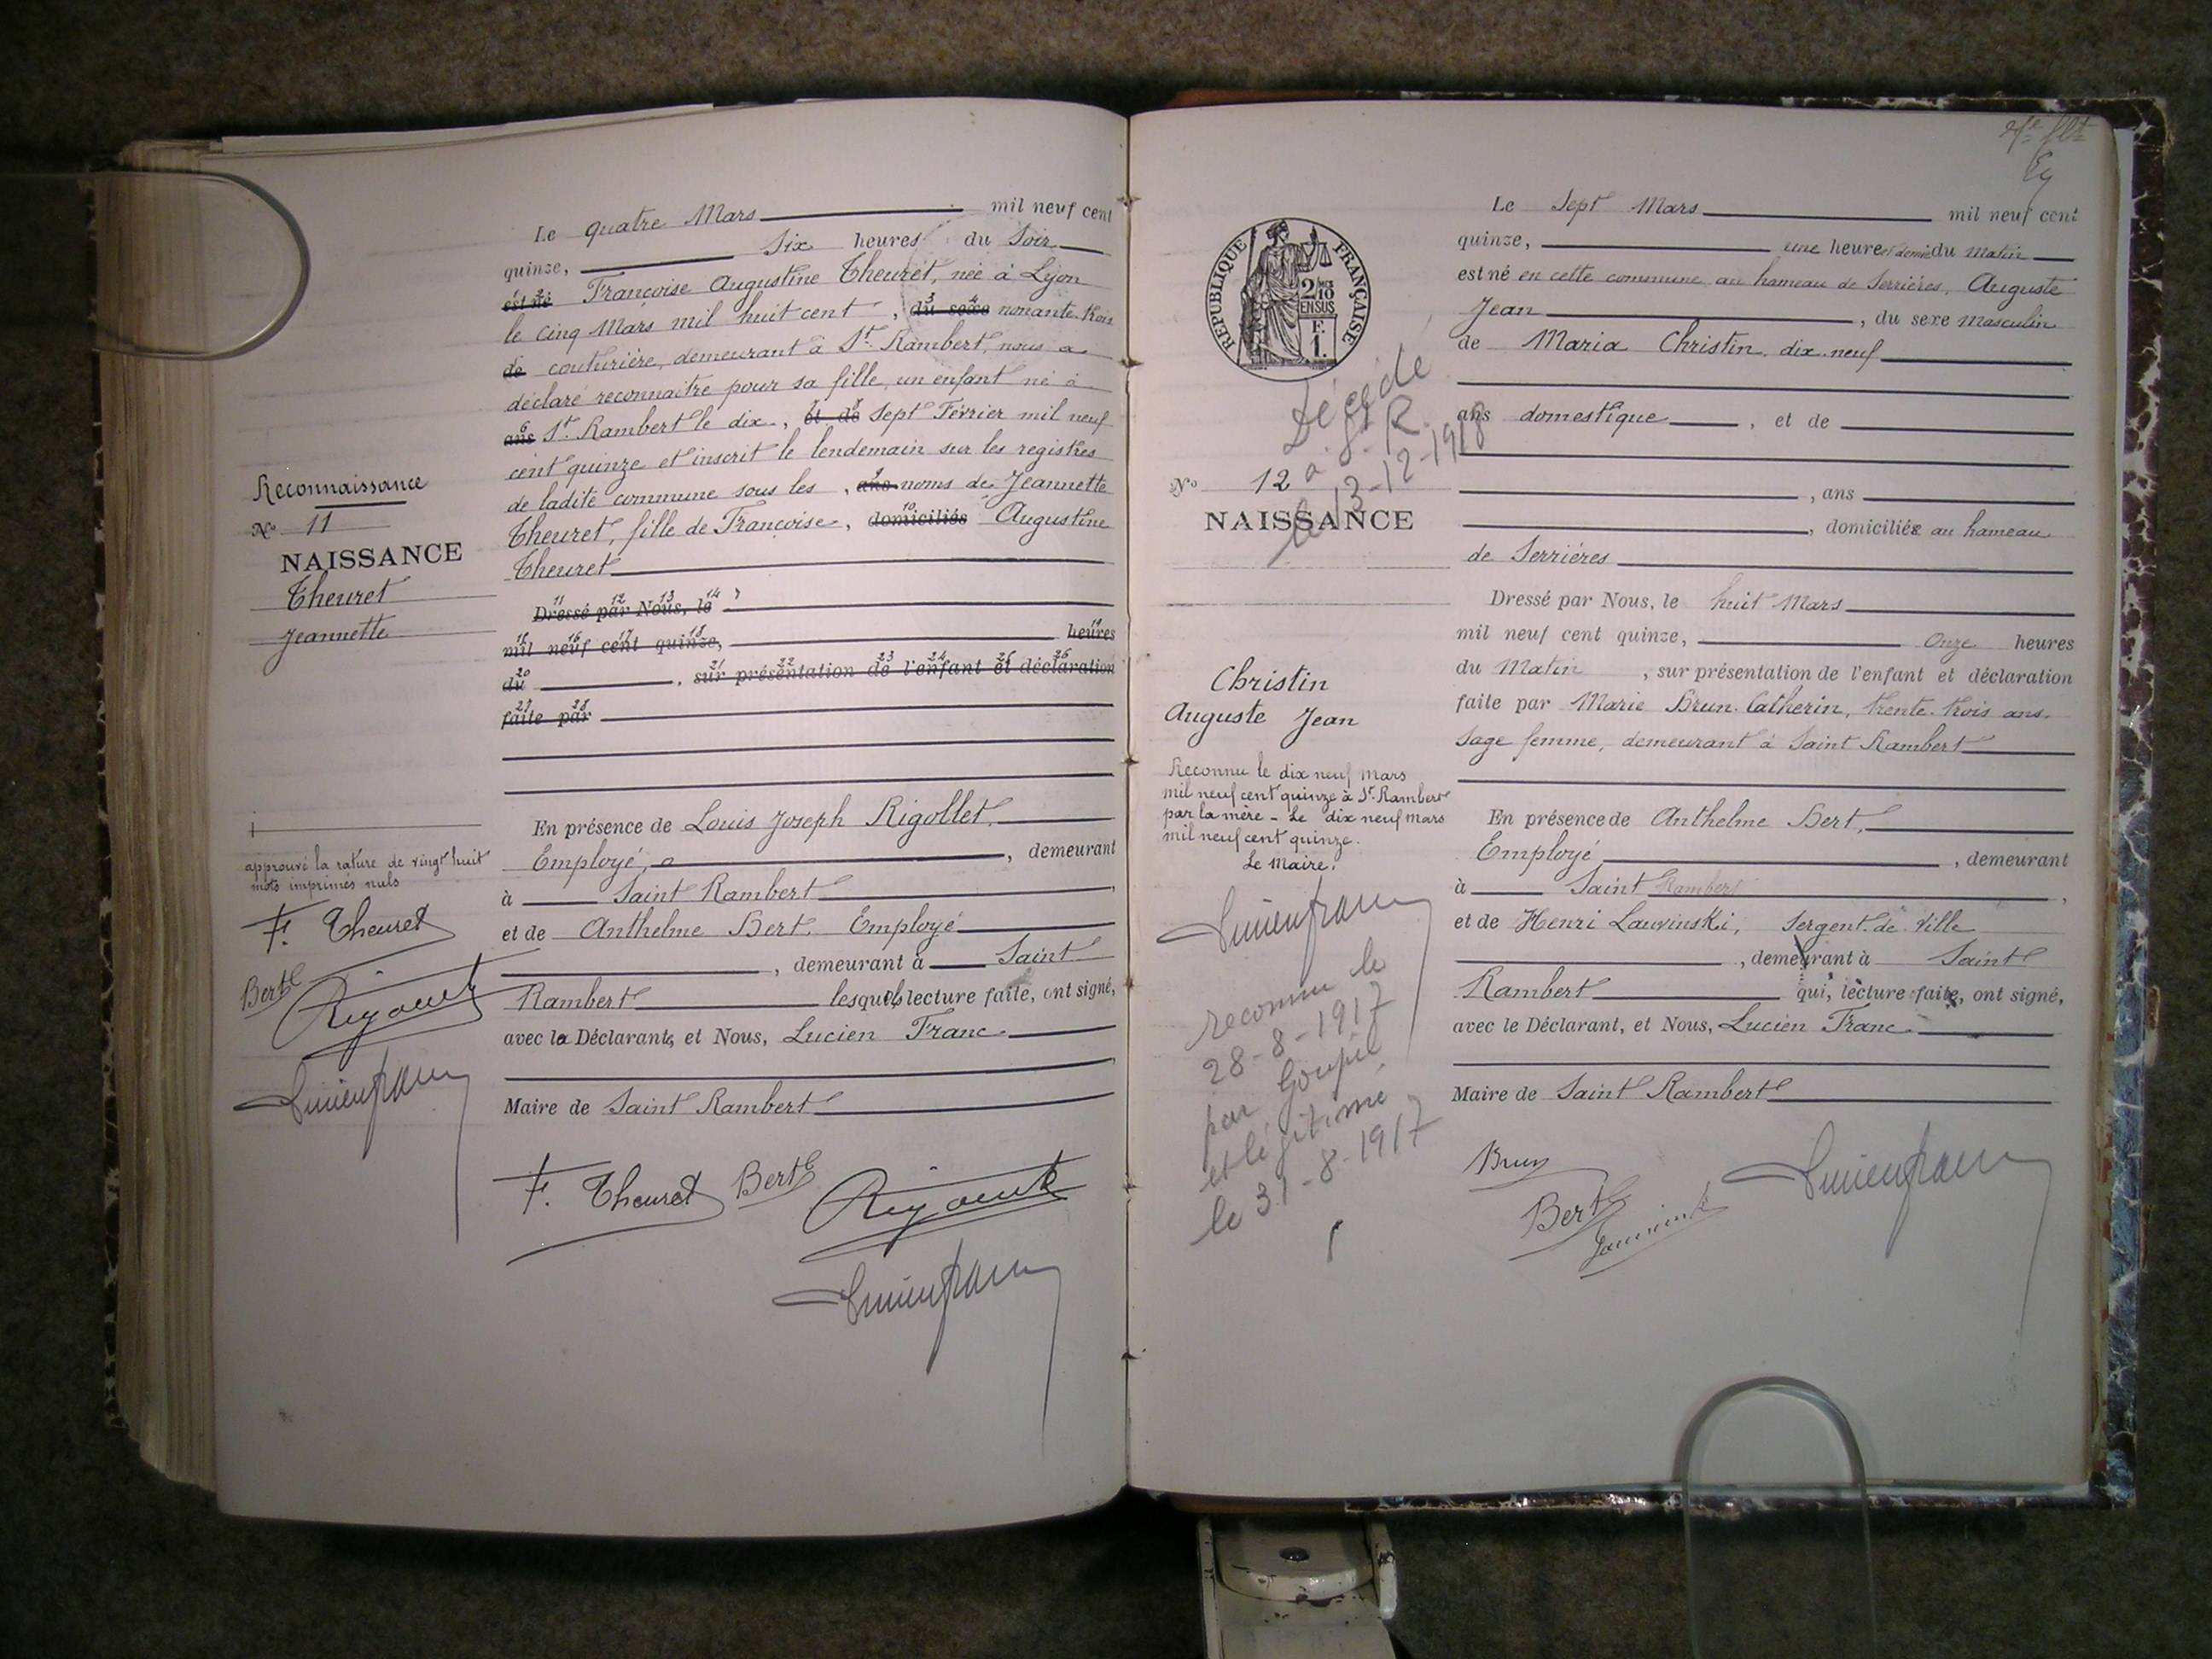 Le quatre Mars mil neuf cent
quinze, Six heures du Soir
est né Françoise Augustine Theuret, née à Lyon
le cinq Mars mil huit cent, du sexe nonante trois
de couturière, demeurant à St Rambert, nous a
déclaré reconnaitre pour sa fille, un enfant né à
ans St Rambert le dix, et de Sept Février mil neuf
cent quinze et inscrit le lendemain sur les registres
de ladite commune sous les, ans noms de Jeannette
Theuret, fille de Françoise, domiciliés Augustine
Theuret
Dressé par Nous, le
mil neuf cent quinze, heures
du , sur présentation de l'enfant et déclaration
faite par
En présence de Louis Joseph Rigollet,
Employé, , demeurant
à Saint Rambert ,
et de Anthelme Bert, Employé
, demeurant à Saint
Rambert lesquels lecture faite, ont signé,
avec la Déclarante, et Nous, Lucien Franc
Maire de Saint Rambert
F. Theuret Bert
Reconnaissance
No 11
NAISSANCE
Theuret
Jeannette
approuvé la rature de vingt huit
mots imprimés nuls
F. Theuret
Bert
REPUBLIQUE FRANÇAISE
2/10
EN SUS
F.
1.
Décédé
à St-R.
le 13-12-1918
No 12
NAISSANCE
Christin
Auguste Jean
Reconnu le dix neuf Mars
mil neuf cent quinze à St Rambert
par la mère - Le dix neuf mars
mil neuf cent quinze.
Le Maire,
reconnu le
28-8-1917
par Goupil
et légitimé
le 31-8-1917
Le Sept Mars mil neuf cent
quinze, une heure et demie du Matin
est né en cette commune, au hameau de Serrières, Auguste
Jean , du sexe Masculin
de Maria Christin, dix-neuf
ans domestique , et de
, ans
, domiciliés au hameau
de Serrières
Dressé par Nous, le huit Mars
mil neuf cent quinze, Onze heures
du Matin , sur présentation de l'enfant et déclaration
faite par Marie Brun-Catherin, trente-trois ans,
Sage femme, demeurant à Saint Rambert
En présence de Anthelme Bert,
Employé , demeurant
à Saint Rambert ,
et de Henri Lauvinski, Sergent de Ville
, demeurant à Saint
Rambert qui, lecture faite, ont signé,
avec le Déclarant, et Nous, Lucien Franc
Maire de Saint Rambert
Brun
Bert